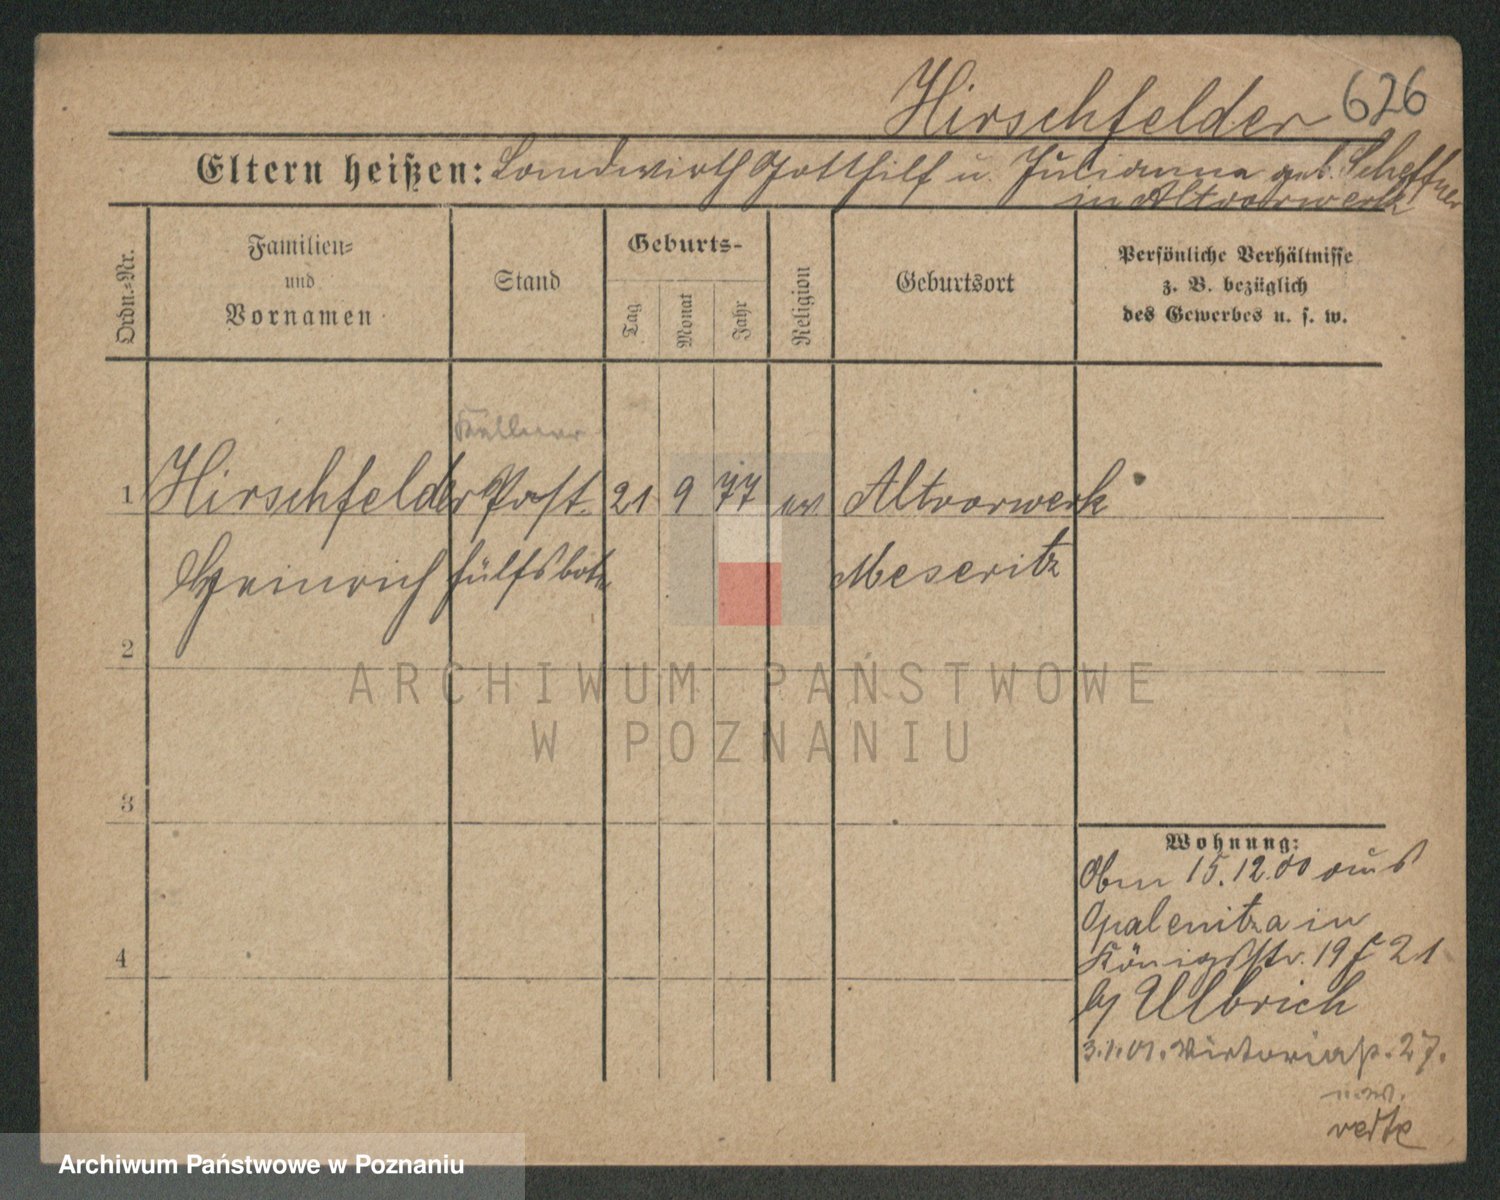 Hirschfelder 626
Eltern heißen: Landwirth Gotthilf u. Julianna geb. Scheffner
in Altvorwerk
Ordn.=Nr.
Familien=
und
Vornamen
Stand
Geburts-
Tag
Monat
Jahr
Religion
Geburtsort
Persönliche Verhältnisse
z. B. bezüglich
des Gewerbes u. s. w.
Kellner
1 Hirschfelder Post. 21 9 77 ev Altvorwerk
Heinrich hülfsbote Meseritz
2
3
4
Wohnung:
15.12.00 aus
Opalenitza in
Königsstr. 19 21
by Ullbrich
3.1.01. Victoriast. 27.
verte
ARCHIWUM PAŃSTWOWE
W POZNANIU
Archiwum Państwowe w Poznaniu